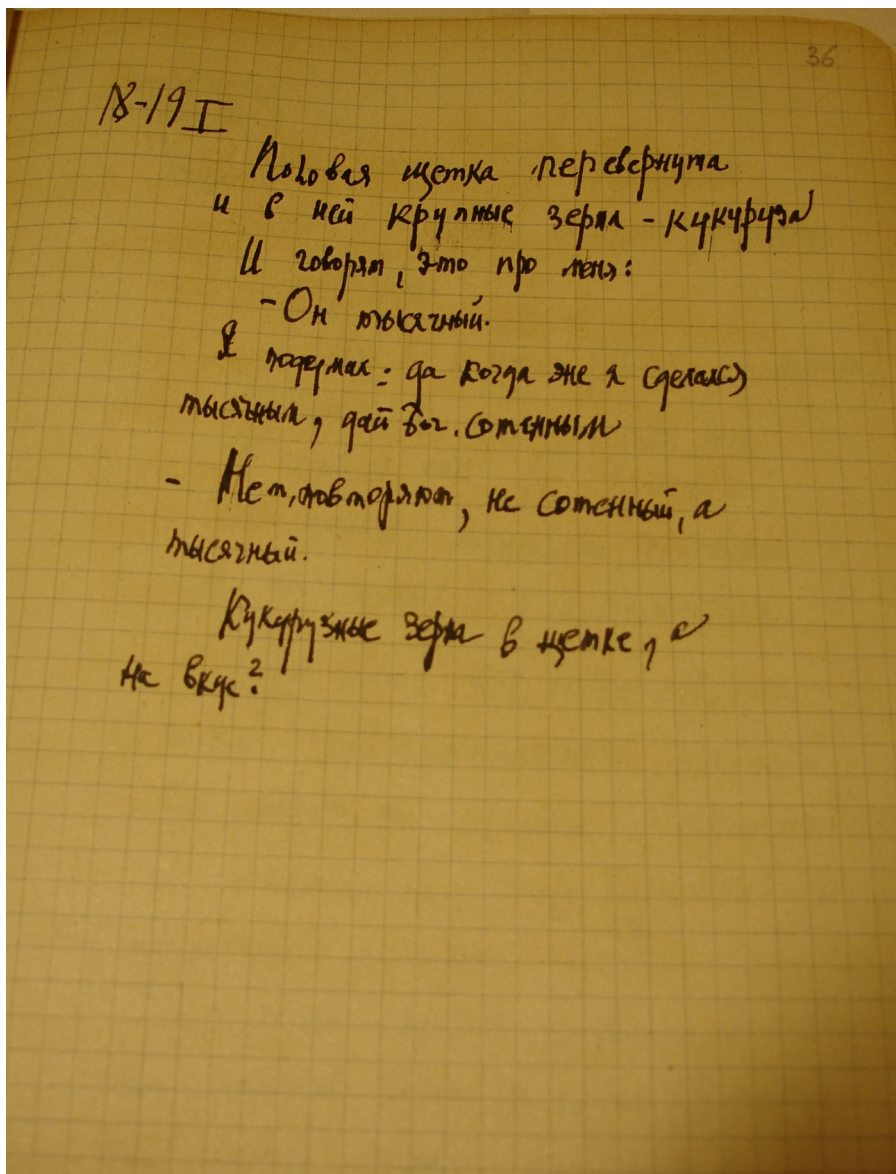 36
18-19 I
Половая щетка перевернута
и в ней крупные зерна - кукуруза
И говорят, это про меня:
- Он тысячный.
Я подумал: да когда же я сделался
тысячным, дай Бог. сотенным
- Нет, повторяют, не сотенный, а
тысячный.
Кукурузные зерна в щетке, а
на вкус?